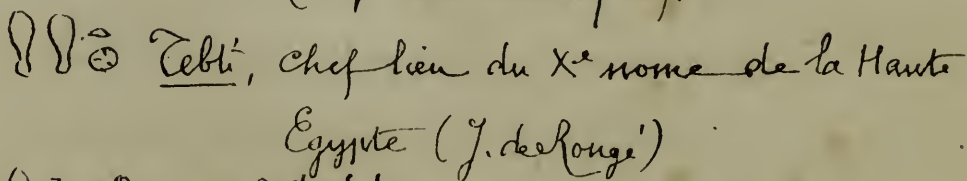 𓋸𓋸𓏏𓊖 Tebti, chef lieu du Xe nome de la Haute
Egypte (J. de Rougé)